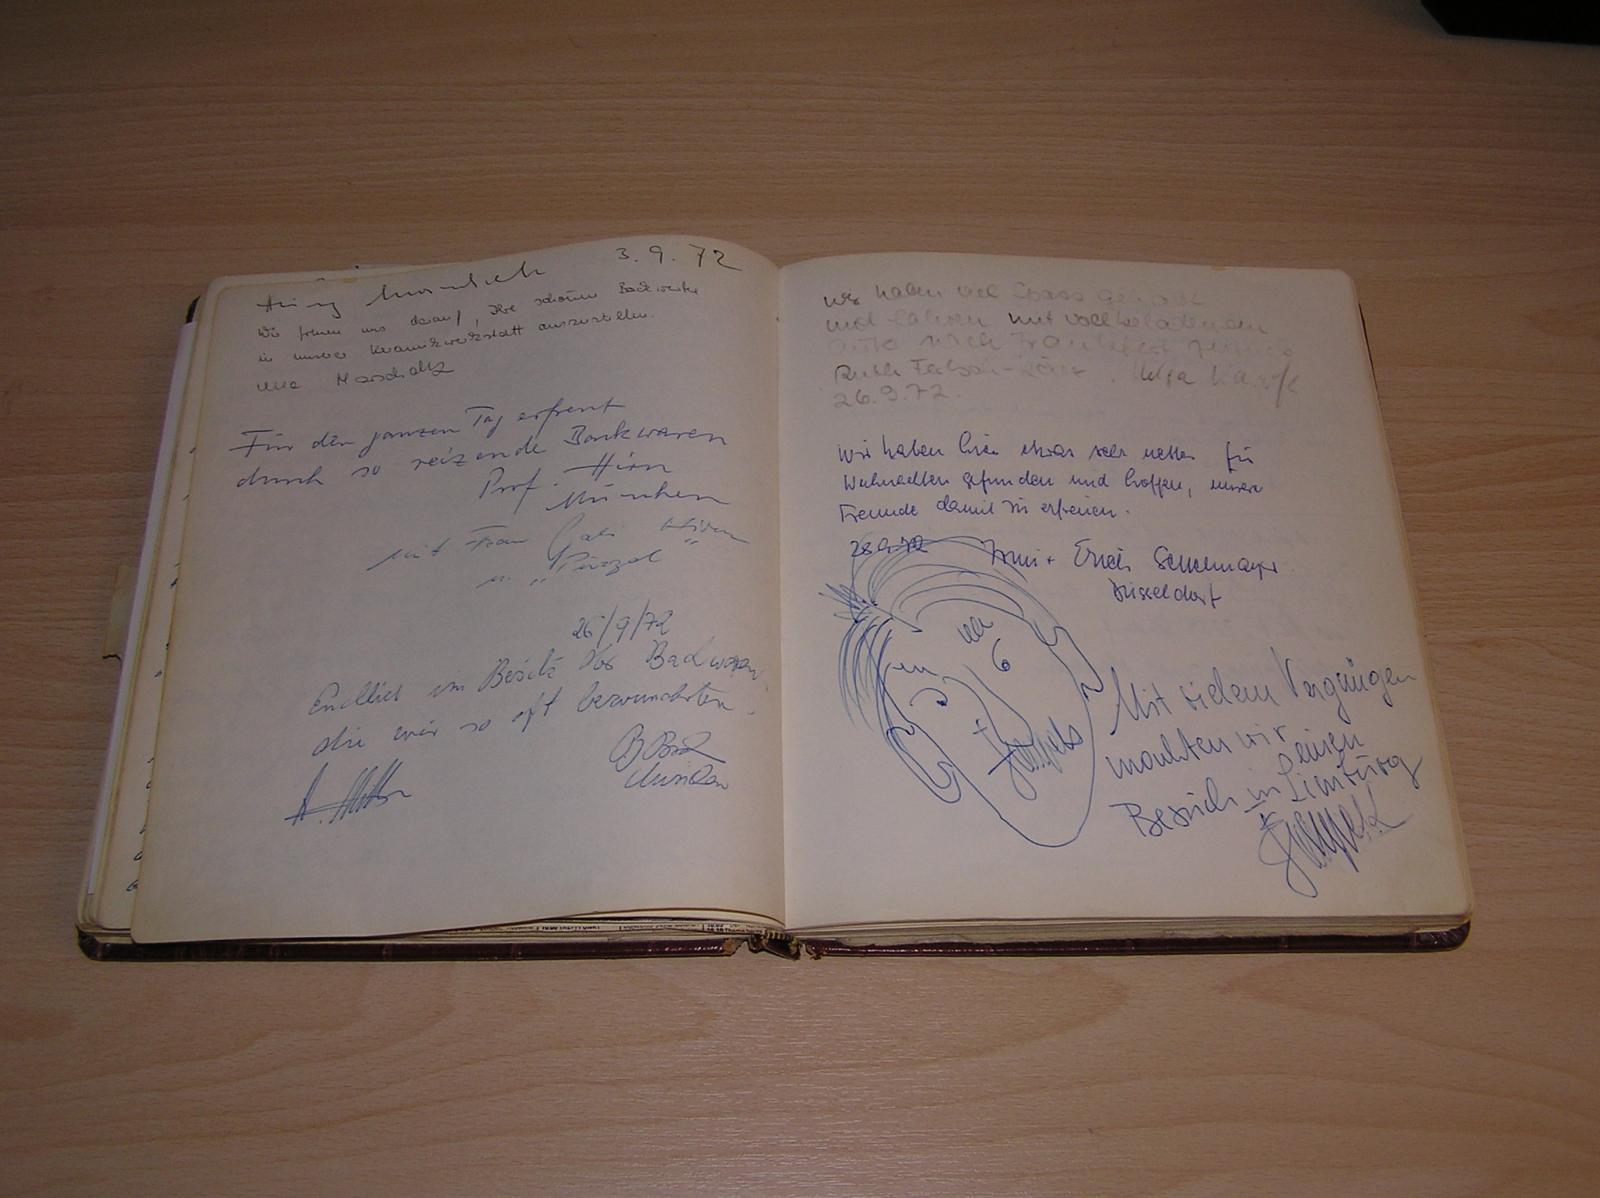 3.9.72
Wir freuen uns darauf, Ihre schönen Backwerke
in unserer Keramikwerkstatt auszustellen.
Für den ganzen Tag erfreut
durch so reizende Backwaren
Prof. Hirn
München
mit Frau Gabi Hirn
u. „Purzel“
26/9/72
Endlich im Besitz der Backwaren
die wir so oft bewunderten.
München
wir haben viel Spass gehabt
und fahren mit vollbeladenem
Auto nach Frankfurt zurück
Ruth Helga
26.9.72.
Wir haben hier etwas sehr nettes für
Weihnachten gefunden und hoffen, unsere
Freunde damit zu erfreuen.
28.9.72 Erich
Düsseldorf
Mit vielem Vergnügen
machten wir einen
Besuch in Limburg